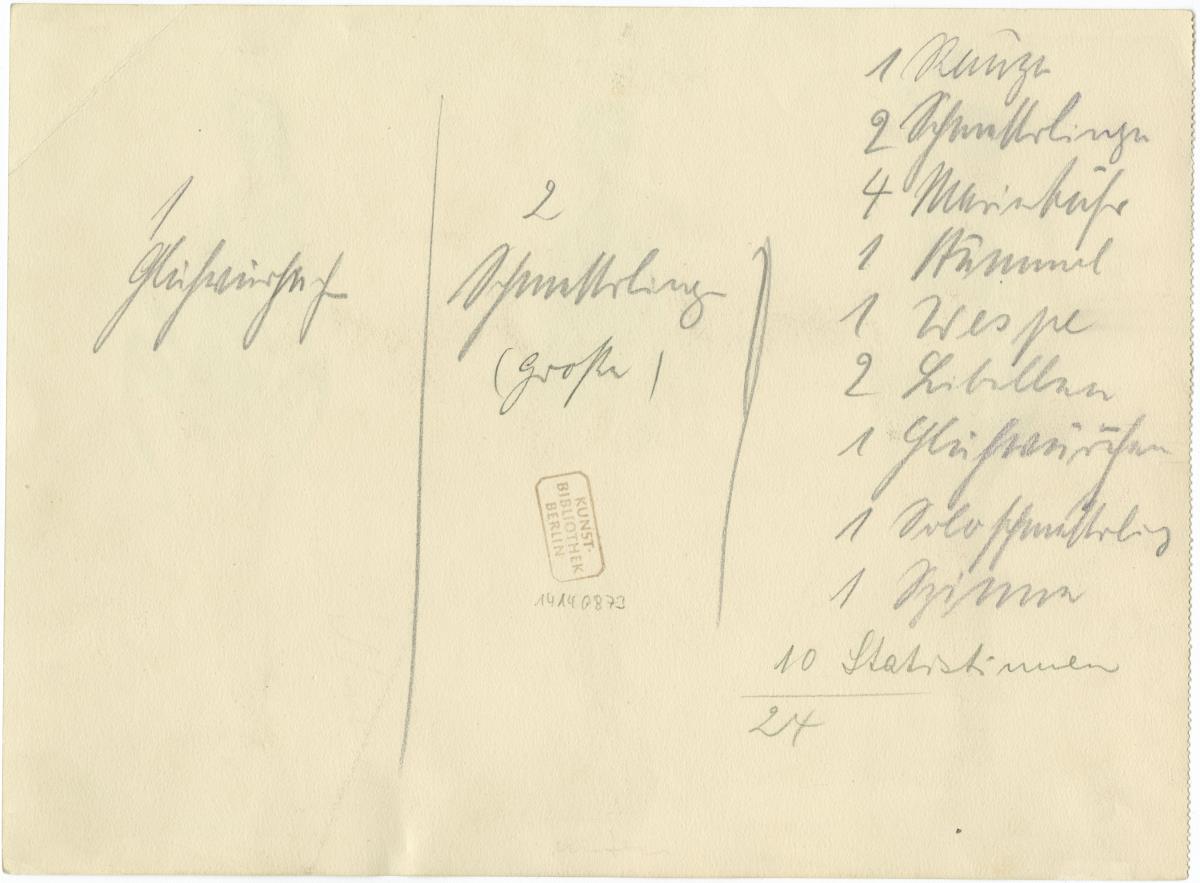 1
Glühwürmchen
2
Schmetterlinge
(Große)
KUNST-
BIBLIOTHEK
BERLIN
14140873
1 Raupe
2 Schmetterlinge
4 Marienkäfer
1 Hummel
1 Wespe
2 Libellen
1 Glühwürmchen
1 Soloschmetterling
1 Spinne
10 Statistinnen
24